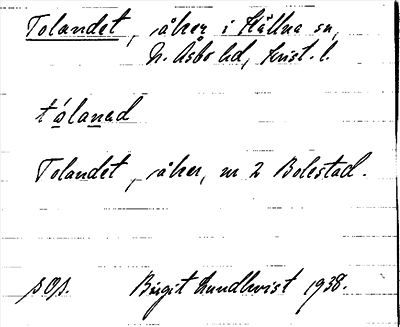 Tolandet, åker i Källna sn,
N. Åsbo hd, Krist. l.
tólanad
Tolandet, åker, nr 2 Bolestad.
s Og.
Birgit Lundkvist 1938.